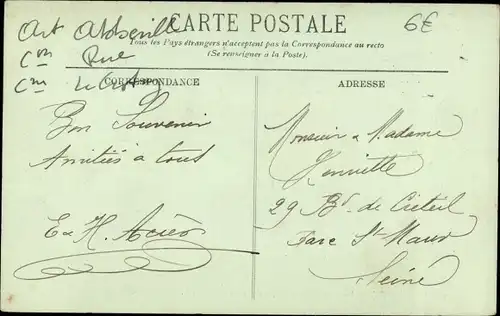 CARTE POSTALE
6€
Art Abbeville
Cm Rue
Cm
Tous les Pays étrangers n'acceptent pas la Correspondance au recto
(Se renseigner à la Poste).
CORRESPONDANCE
Bon Souvenir
Amitiés a tous
E & H.
ADRESSE
Monsieur & Madame
29 Bd de Créteil
Parc St Maur
Seine